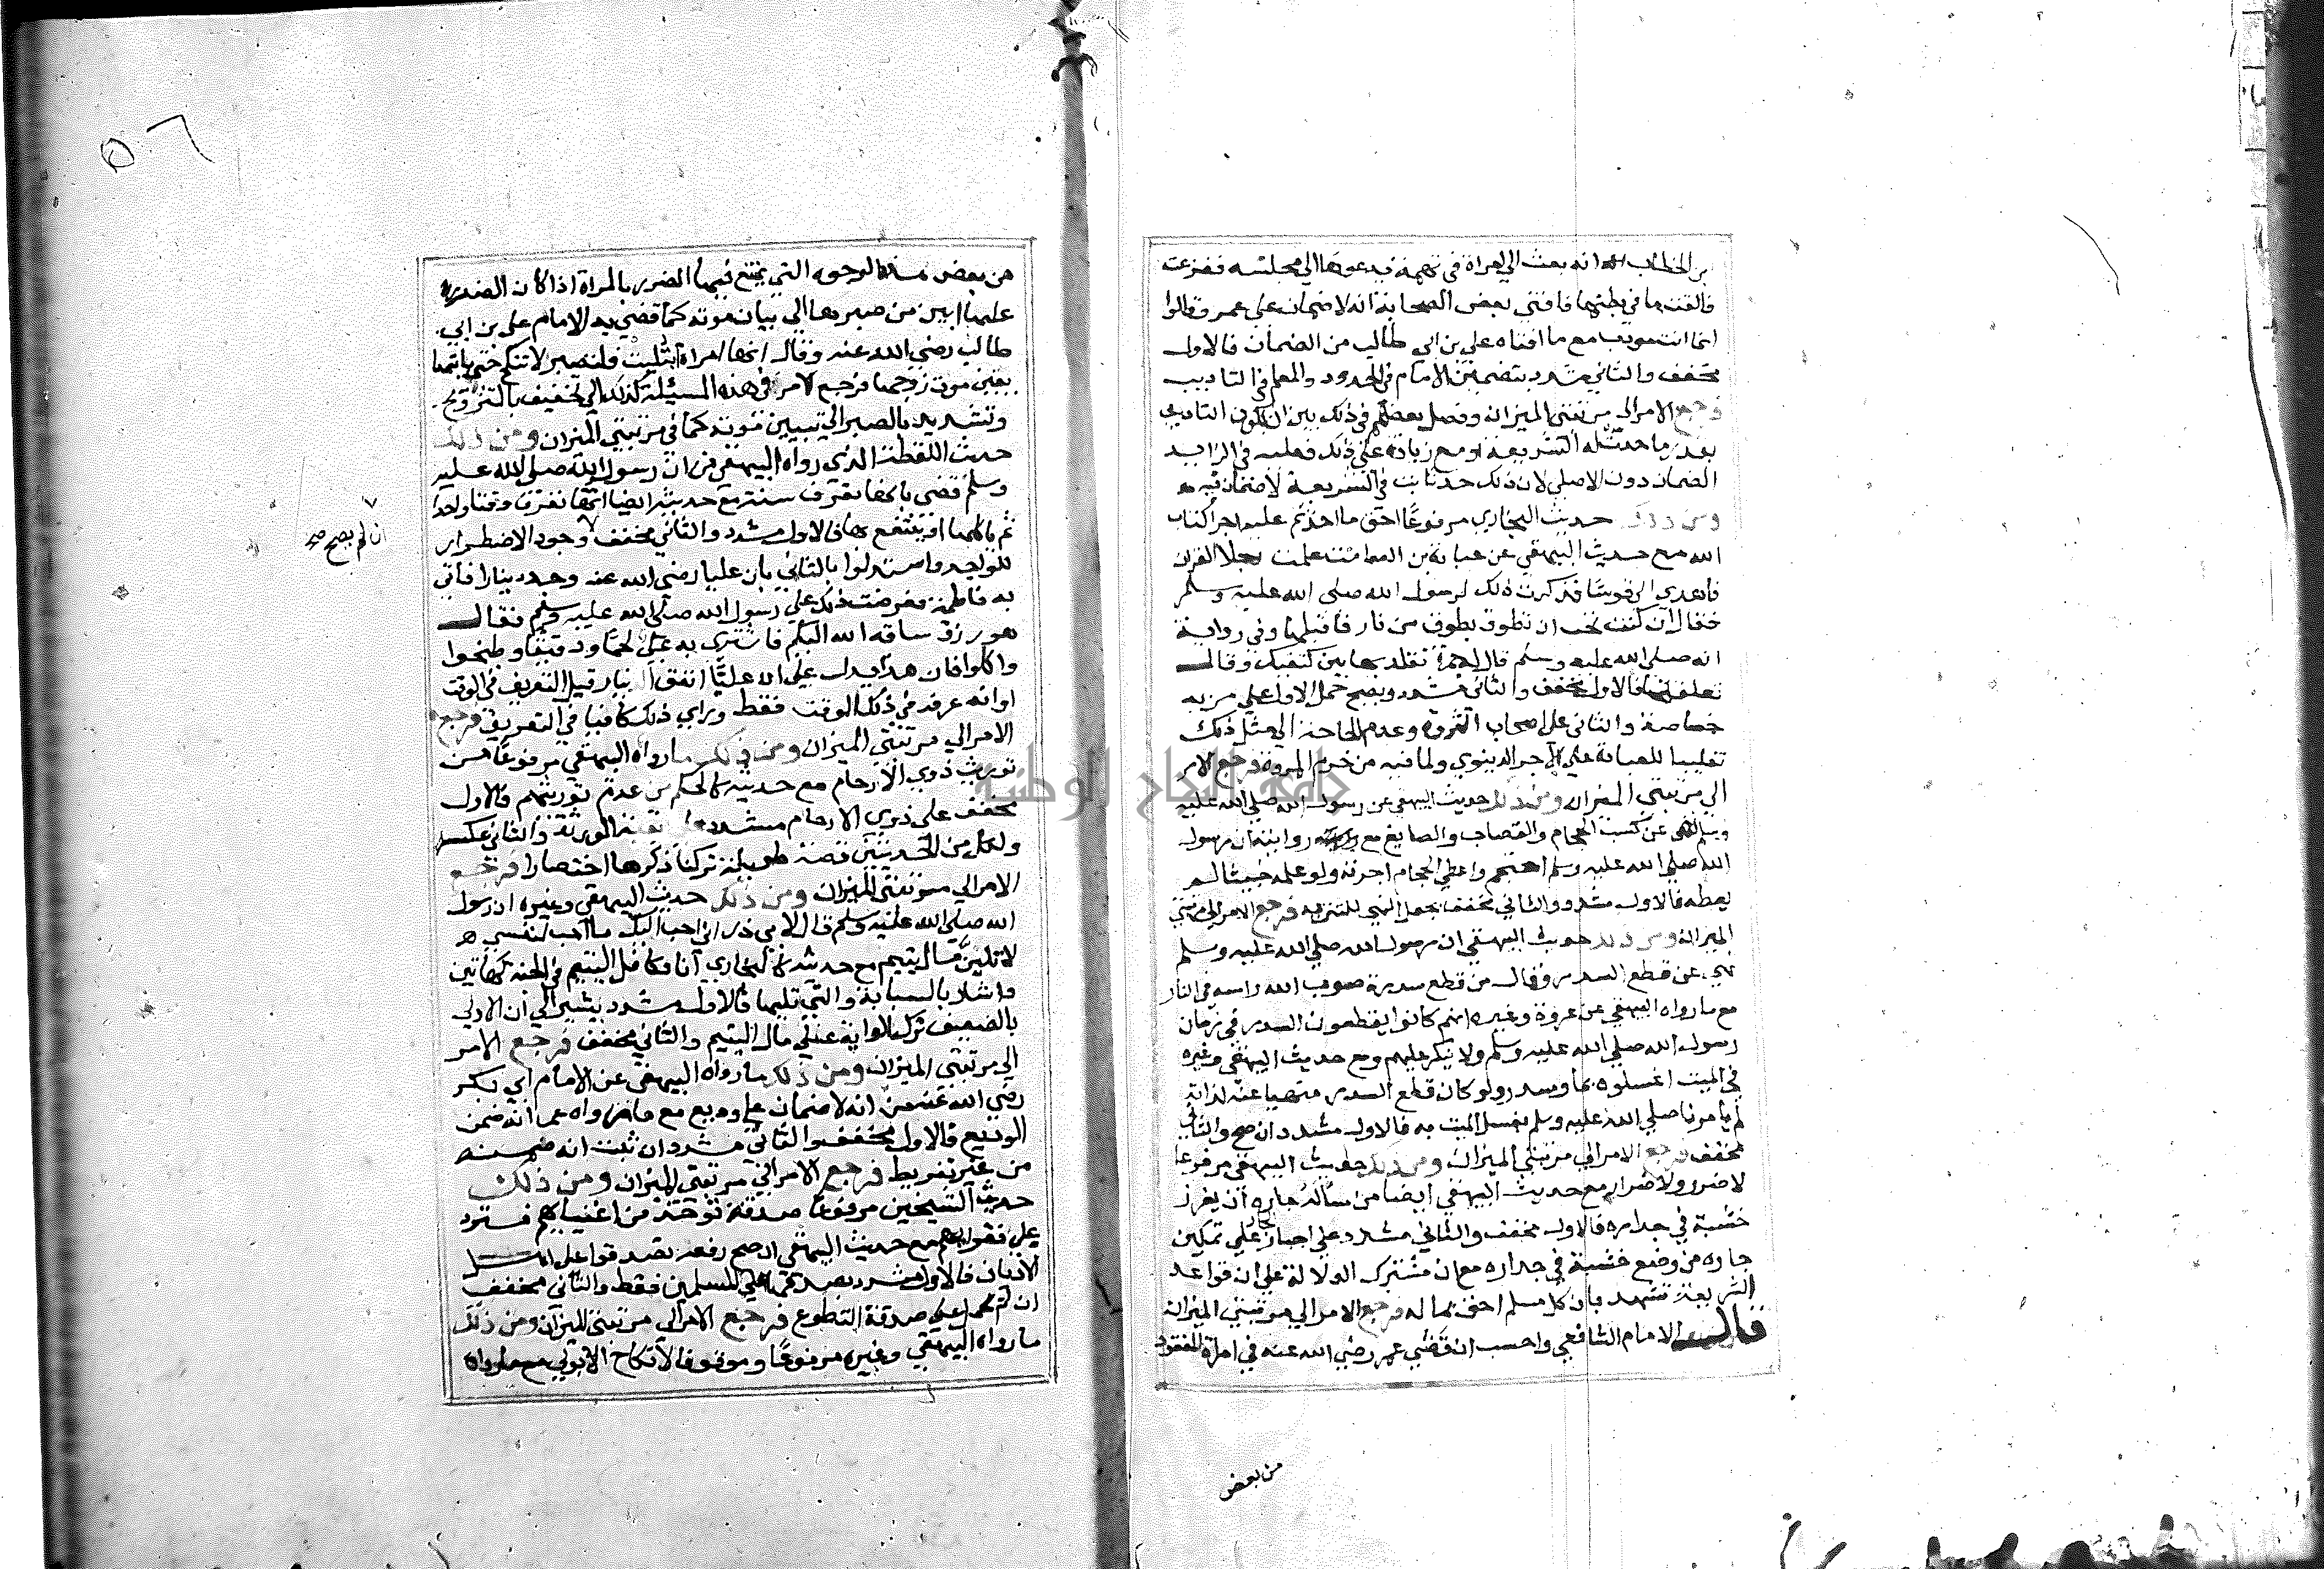 بن الخطاب انه بعث الي امراة في تهمة يدعوها الي مجلسه ففزعت
فالقت ما في بطنها فافتي بعض الصحابة انه لا ضمان علي عمر وقالوا
انما انت مودب مع ما افتاه علي بن ابي طالب من الضمان فالاول
مخفف والثاني مشدد بتضمين الامام في الحدود والمعلم في التاديب
فرجع الامر الي مرتبتي الميزان وفصل بعضهم في ذلك بين ان يكون التاديب
بقدر ما حدته له الشريعة او مع زيادة علي ذلك فعليه في الزايد
الضمان دون الاصلي لان ذلك حد ثابت في الشريعة لا ضمان فيه
ومن ذلك حديث البخاري مرفوعا احق ما اخذتم عليه اجرا كتاب
الله مع حديث البيهقي عن عبادة بن الصامت علمت رجلا القران
فاهدي الي قوسا فذكرت ذلك لرسول الله صلي الله عليه وسلم
فقال ان كنت تحب ان تطوق بطوق من نار فاقبلها وفي رواية
انه صلي الله عليه وسلم قال جمرة تقلدها بين كتفيك وقال
تعلقتها فالاول مخفف والثاني مشدد ويصح حمل الاول علي من به
خصاصة والثاني علي اصحاب الثروة وعدم الحاجة الي مثل ذلك
تغليبا للعبادة علي الاجر الدنيوي ولما فيه من خرم المروة فرجع الامر
الي مرتبتي الميزان ومن ذلك حديث البيهقي عن رسول الله صلي الله عليه
وسلم نهي عن كسب الحجام والقصاب والصايغ مع روايته ان رسول
الله صلي الله عليه وسلم احتجم واعطي الحجام اجرته ولو علمه خبيثا لم
يعطه فالاول مشدد والثاني مخفف بحمل النهي للتنزيه فرجع الامر الي مرتبتي
الميزان ومن ذلك حديث البيهقي ان رسول الله صلي الله عليه وسلم
نهي عن قطع السدر وقال من قطع سدرة صوب الله راسه في النار
مع ما رواه البيهقي عن عروة وغيره انهم كانوا يقطعون السدر في زمان
رسول الله صلي الله عليه وسلم ولا ينكر عليهم ومع حديث البيهقي وغيره
في الميت اغسلوه بما وسدر ولو كان قطع السدر منهيا عنه لذاته
لم يامرنا صلي الله عليه وسلم بغسل الميت به فالاول مشدد ان صح والثاني
مخفف فرجع الامر الي مرتبتي الميزان ومن ذلك حديث البيهقي مرفوعا
لا ضرر ولا ضرار مع حديث البيهقي ايضا من ساله جاره ان يغرز
خشبة في جداره فالاول مخفف والثاني مشدد علي اجبار الجار علي تمكين
جاره من وضع خشبة في جداره مع ان مشترك الدلالة علي ان قواعد
الشريعة تشهد بان كل مسلم احق بماله فرجع الامر الي مرتبتي الميزان
قال الامام الشافعي واحسب ان قضي عمر رضي الله عنه في امراة المفقود
من بعض
٥٦
من بعض هذه الوجوه التي يمتنع فيها الضرر بالمراة اذا كان الضرر
عليها ابين من صبرها الي بيان موته كما قضي به الامام علي بن ابي
طالب رضي الله عنه وقال انها امراة ابتليت فلتصبر لا تنكح حتي ياتيها
يقين موت زوجها فرجع الامر في هذه المسئلة كذلك الي تخفيف بالتزويج
وتشديد بالصبر الي تبيين موته كما في مرتبتي الميزان ومن ذلك
حديث اللقطة الذي رواه البيهقي من ان رسول الله صلي الله عليه
وسلم قضي بانها تعرف سنة مع حديثه ايضا انها تعرف وقتا واحدا
ثم ياكلها او ينتفع بها فالاول مشدد والثاني مخفف وجود الاضطرار
ان لم يصح صح
للواجد واستدلوا بالثاني بان عليا رضي الله عنه وجد دينارا فاتي
به فاطمة فعرضت ذلك علي رسول الله صلي الله عليه وسلم فقال
هو رزق ساقه الله اليكم فاشتري به علي لحما ودقيقا وطبخوا
واكلوا فان هذا يدل علي ان عليا انفق الدينار قبل التعريف في الوقت
او انه عرفه في ذلك الوقت فقط وراي ذلك كافيا في التعريف فرجع
الامر الي مرتبتي الميزان ومن ذلك ما رواه البيهقي مرفوعا من
توريث ذوي الارحام مع حديثه كالحاكم من عدم توريثهم فالاول
مخفف علي ذوي الارحام مشدد علي بقية الورثة والثاني عكسه
ولكل من الحديثين قصة طويلة تركنا ذكرها اختصارا فرجع
الامر الي مرتبتي الميزان ومن ذلك حديث البيهقي وغيره ان رسول
الله صلي الله عليه وسلم قال لابي ذر اني احب اليك ما احب لنفسي
لا تلين مال يتيم مع حديثه كالبخاري انا وكافل اليتيم في الجنة كهاتين
واشار بالسبابة والتي تليها فالاول مشدد يشير الي ان الاولي
بالضعيف ترك الولاية علي مال اليتيم والثاني مخفف فرجع الامر
الي مرتبتي الميزان ومن ذلك ما رواه البيهقي عن الامام ابي بكر
رضي الله عنه من انه لا ضمان علي وديع مع ما رواه عمر انه ضمن
الوديع فالاول مخفف والثاني مشدد ان ثبت انه ضمنه
من غير تفريط فرجع الامر الي مرتبتي الميزان ومن ذلك
حديث الشيخين مرفوعا صدقة توخذ من اغنيايهم فترد
علي فقرايهم مع حديث البيهقي ان صح رفعه تصدقوا علي اهل
الاديان فالاول مشدد بصدقتها علي المسلمين فقط والثاني مخفف
ان لم يحمل علي صدقة التطوع فرجع الامر الي مرتبتي الميزان ومن ذلك
ما رواه البيهقي وغيره مرفوعا وموقوفا لا نكاح الا بولي مع ما رواه